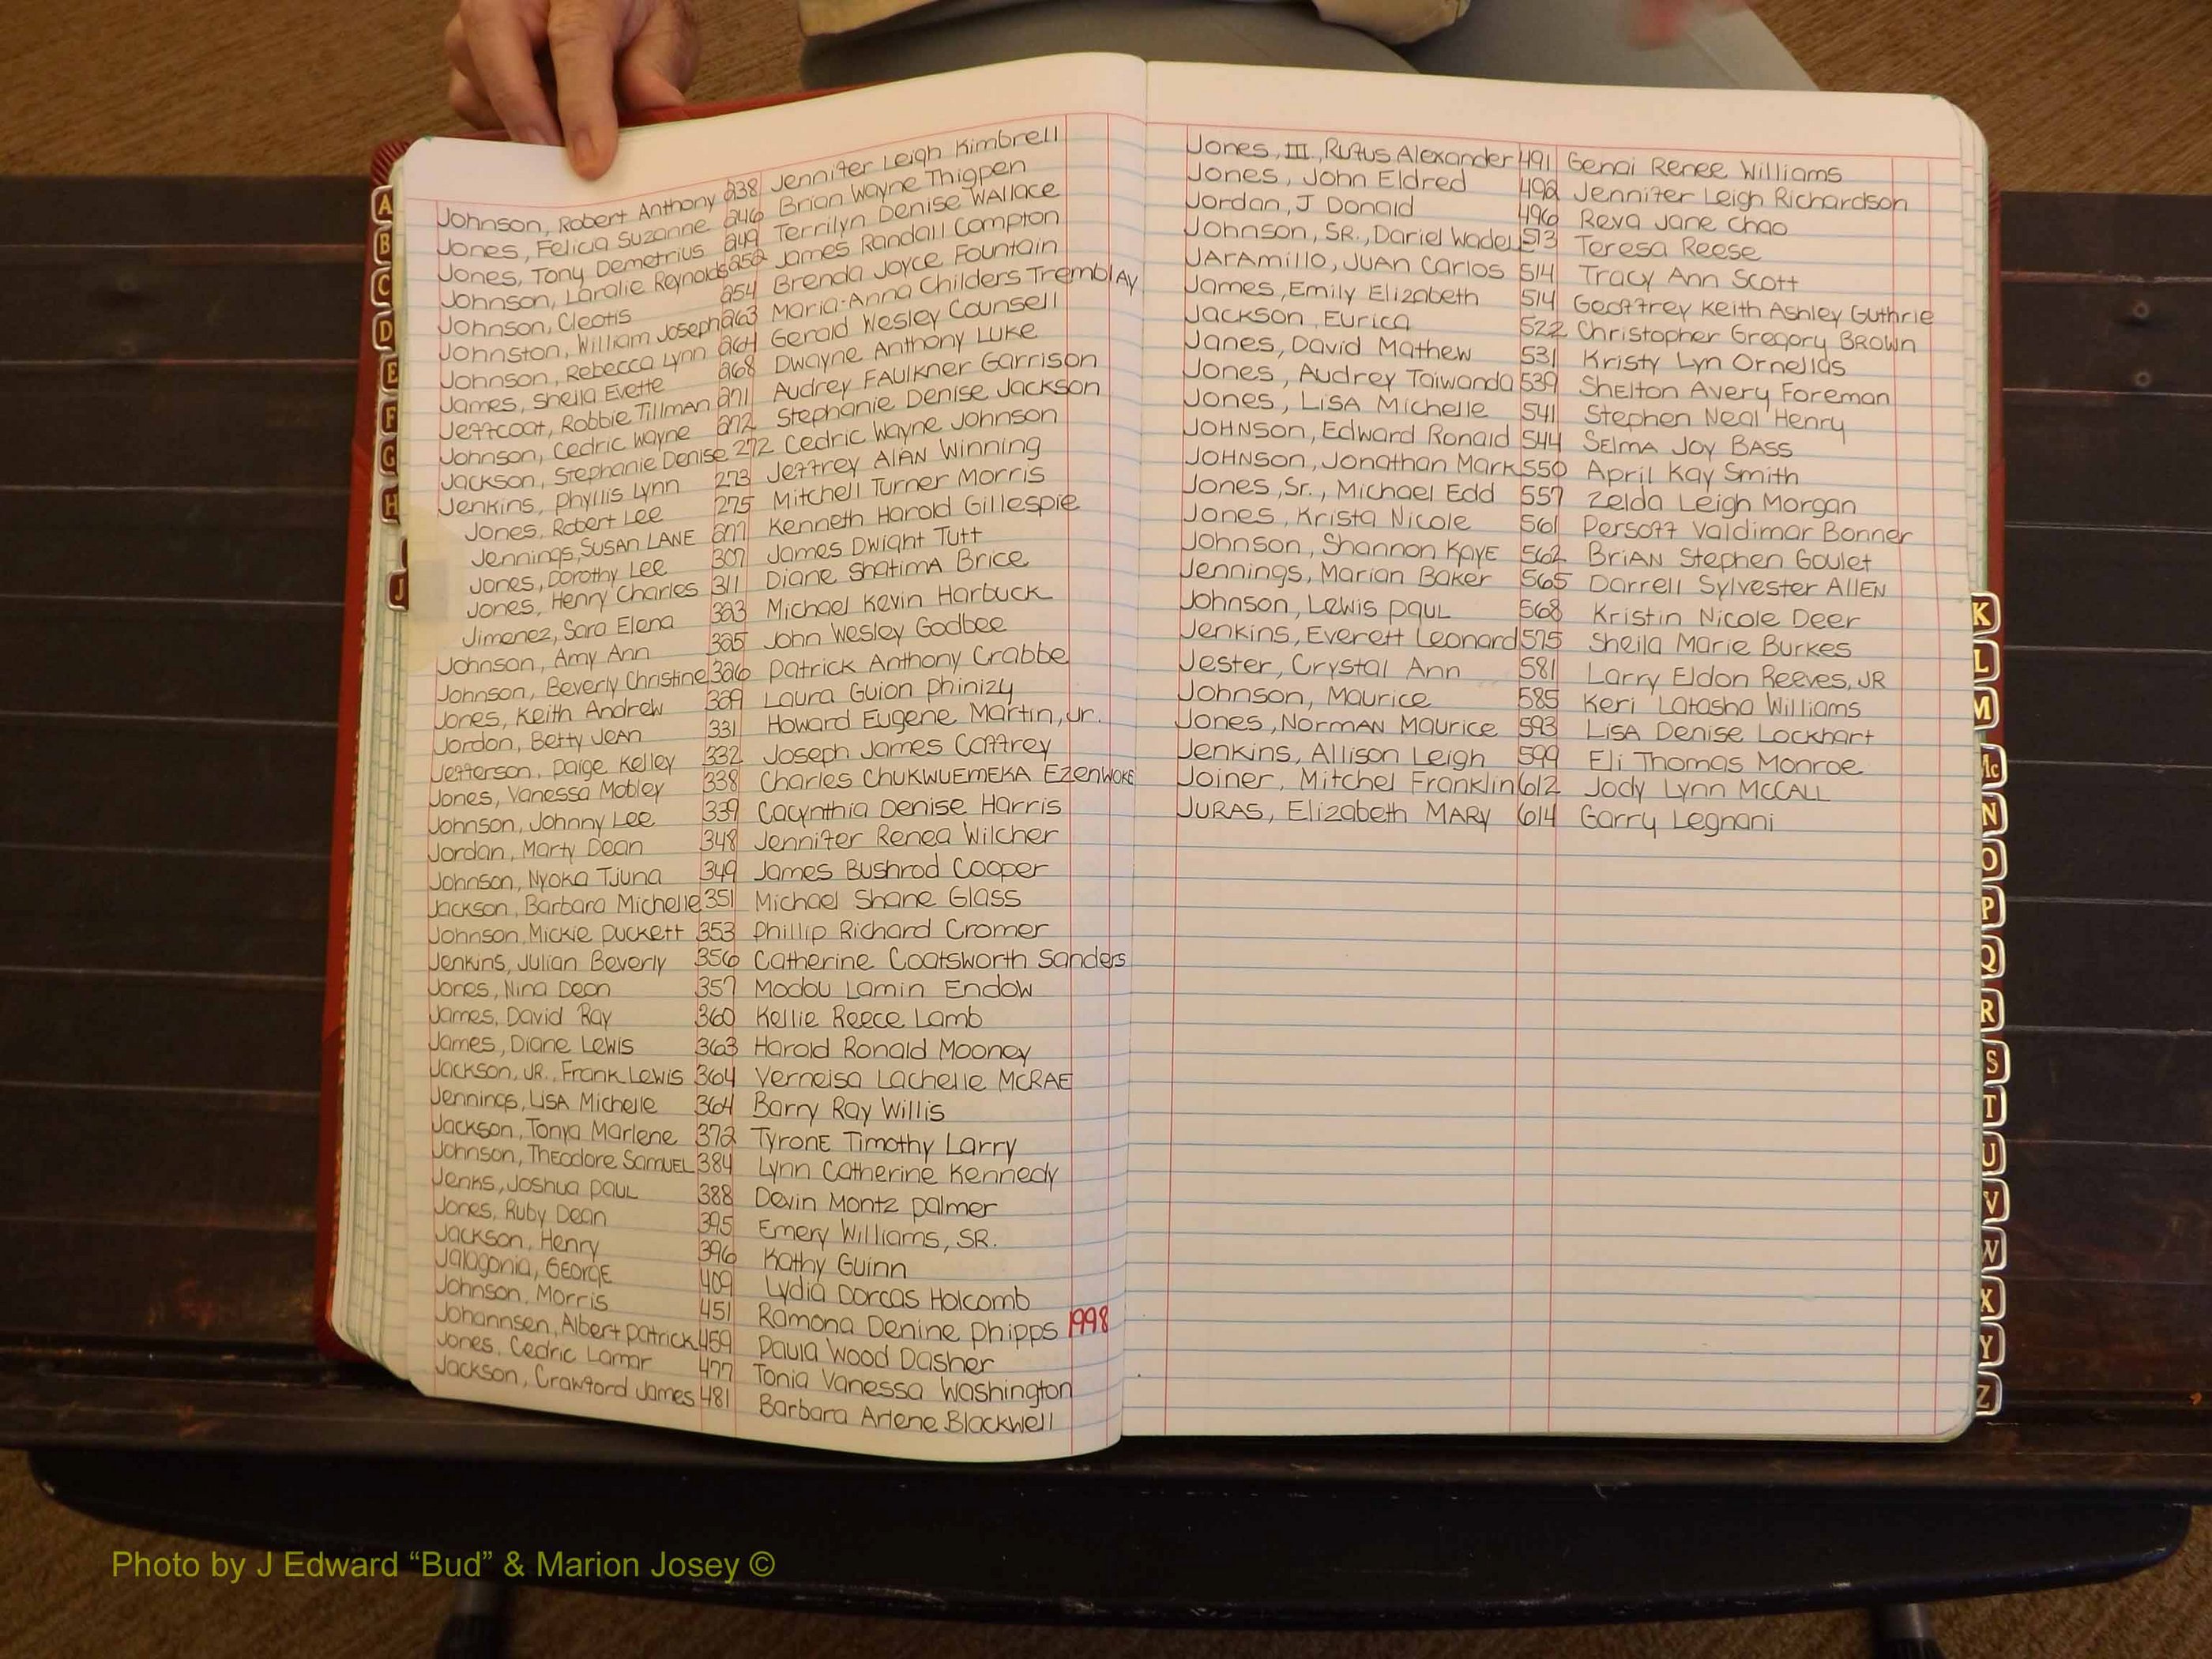 Johnson, Robert Anthony 238 Jennifer Leigh Kimbrell
Jones, Felicia Suzanne 246 Brian Wayne Thigpen
Jones, Tony Demetrius 249 Terrilyn Denise Wallace
Johnson, Laralie Reynolds 252 James Randall Compton
Johnson, Cleotis 254 Brenda Joyce Fountain
Johnston, William Joseph 263 Maria-Anna Childers Tremblay
Johnson, Rebecca Lynn 264 Gerald Wesley Counsell
James, Sheila Evette 268 Dwayne Anthony Luke
Jeffcoat, Robbie Tillman 271 Audrey Faulkner Garrison
Johnson, Cedric Wayne 272 Stephanie Denise Jackson
Jackson, Stephanie Denise 272 Cedric Wayne Johnson
Jenkins, Phyllis Lynn 273 Jeffrey Alan Winning
Jones, Robert Lee 275 Mitchell Turner Morris
Jennings, Susan Lane 277 Kenneth Harold Gillespie
Jones, Dorothy Lee 307 James Dwight Tutt
Jones, Henry Charles 311 Diane Shatima Brice
Jimenez, Sara Elena 323 Michael Kevin Harbuck
Johnson, Amy Ann 325 John Wesley Godbee
Johnson, Beverly Christine 326 Patrick Anthony Crabbe
Jones, Keith Andrew 329 Laura Guion Phinizy
Jordon, Betty Jean 331 Howard Eugene Martin, Jr.
Jefferson, Paige Kelley 332 Joseph James Caffrey
Jones, Vanessa Mobley 338 Charles Chukwuemeka Ezenwoke
Johnson, Johnny Lee 339 Cacynthia Denise Harris
Jordan, Marty Dean 348 Jennifer Renea Wilcher
Johnson, Nyoka Tjuna 349 James Bushrod Cooper
Jackson, Barbara Michelle 351 Michael Shane Glass
Johnson, Mickie Puckett 353 Phillip Richard Cromer
Jenkins, Julian Beverly 356 Catherine Coatsworth Sanders
Jones, Nina Deon 357 Modou Lamin Endow
James, David Ray 360 Kellie Reece Lamb
James, Diane Lewis 363 Harold Ronald Mooney
Jackson, JR., Frank Lewis 364 Verneisa Lachelle McRae
Jennings, Lisa Michelle 364 Barry Ray Willis
Jackson, Tonya Marlene 372 Tyrone Timothy Larry
Johnson, Theodore Samuel 384 Lynn Catherine Kennedy
Jenks, Joshua Paul 388 Devin Montz Palmer
Jones, Ruby Dean 395 Emery Williams, SR.
Jackson, Henry 396 Kathy Guinn
Jalagonia, George 409 Lydia Dorcas Holcomb
Johnson, Morris 451 Ramona Denine Phipps 1998
Johannsen, Albert Patrick 459 Paula Wood Dasher
Jones, Cedric Lamar 477 Tonia Vanessa Washington
Jackson, Crawford James 481 Barbara Arlene Blackwell
Jones, III, Rufus Alexander 491 Genai Renee Williams
Jones, John Eldred 492 Jennifer Leigh Richardson
Jordan, J Donald 496 Reva Jane Chao
Johnson, SR., Dariel Wade 513 Teresa Reese
Jaramillo, Juan Carlos 514 Tracy Ann Scott
James, Emily Elizabeth 514 Geoffrey Keith Ashley Guthrie
Jackson, Eurica 522 Christopher Gregory Brown
Janes, David Mathew 531 Kristy Lyn Ornellas
Jones, Audrey Taiwanda 539 Shelton Avery Foreman
Jones, Lisa Michelle 541 Stephen Neal Henry
Johnson, Edward Ronald 544 Selma Joy Bass
Johnson, Jonathan Mark 550 April Kay Smith
Jones, Sr., Michael Edd 557 Zelda Leigh Morgan
Jones, Krista Nicole 561 Persoff Valdimar Bonner
Johnson, Shannon Kaye 562 Brian Stephen Goulet
Jennings, Marian Baker 565 Darrell Sylvester Allen
Johnson, Lewis Paul 568 Kristin Nicole Deer
Jenkins, Everett Leonard 575 Sheila Marie Burkes
Jester, Crystal Ann 581 Larry Eldon Reeves, JR
Johnson, Maurice 585 Keri Latasha Williams
Jones, Norman Maurice 593 Lisa Denise Lockhart
Jenkins, Allison Leigh 599 Eli Thomas Monroe
Joiner, Mitchel Franklin 612 Jody Lynn McCall
Juras, Elizabeth Mary 614 Garry Legnani
A
B
C
D
E
F
G
H
J
K
L
M
Mc
N
O
P
Q
R
S
T
U
V
W
X
Y
Z
Photo by J Edward “Bud” & Marion Josey ©